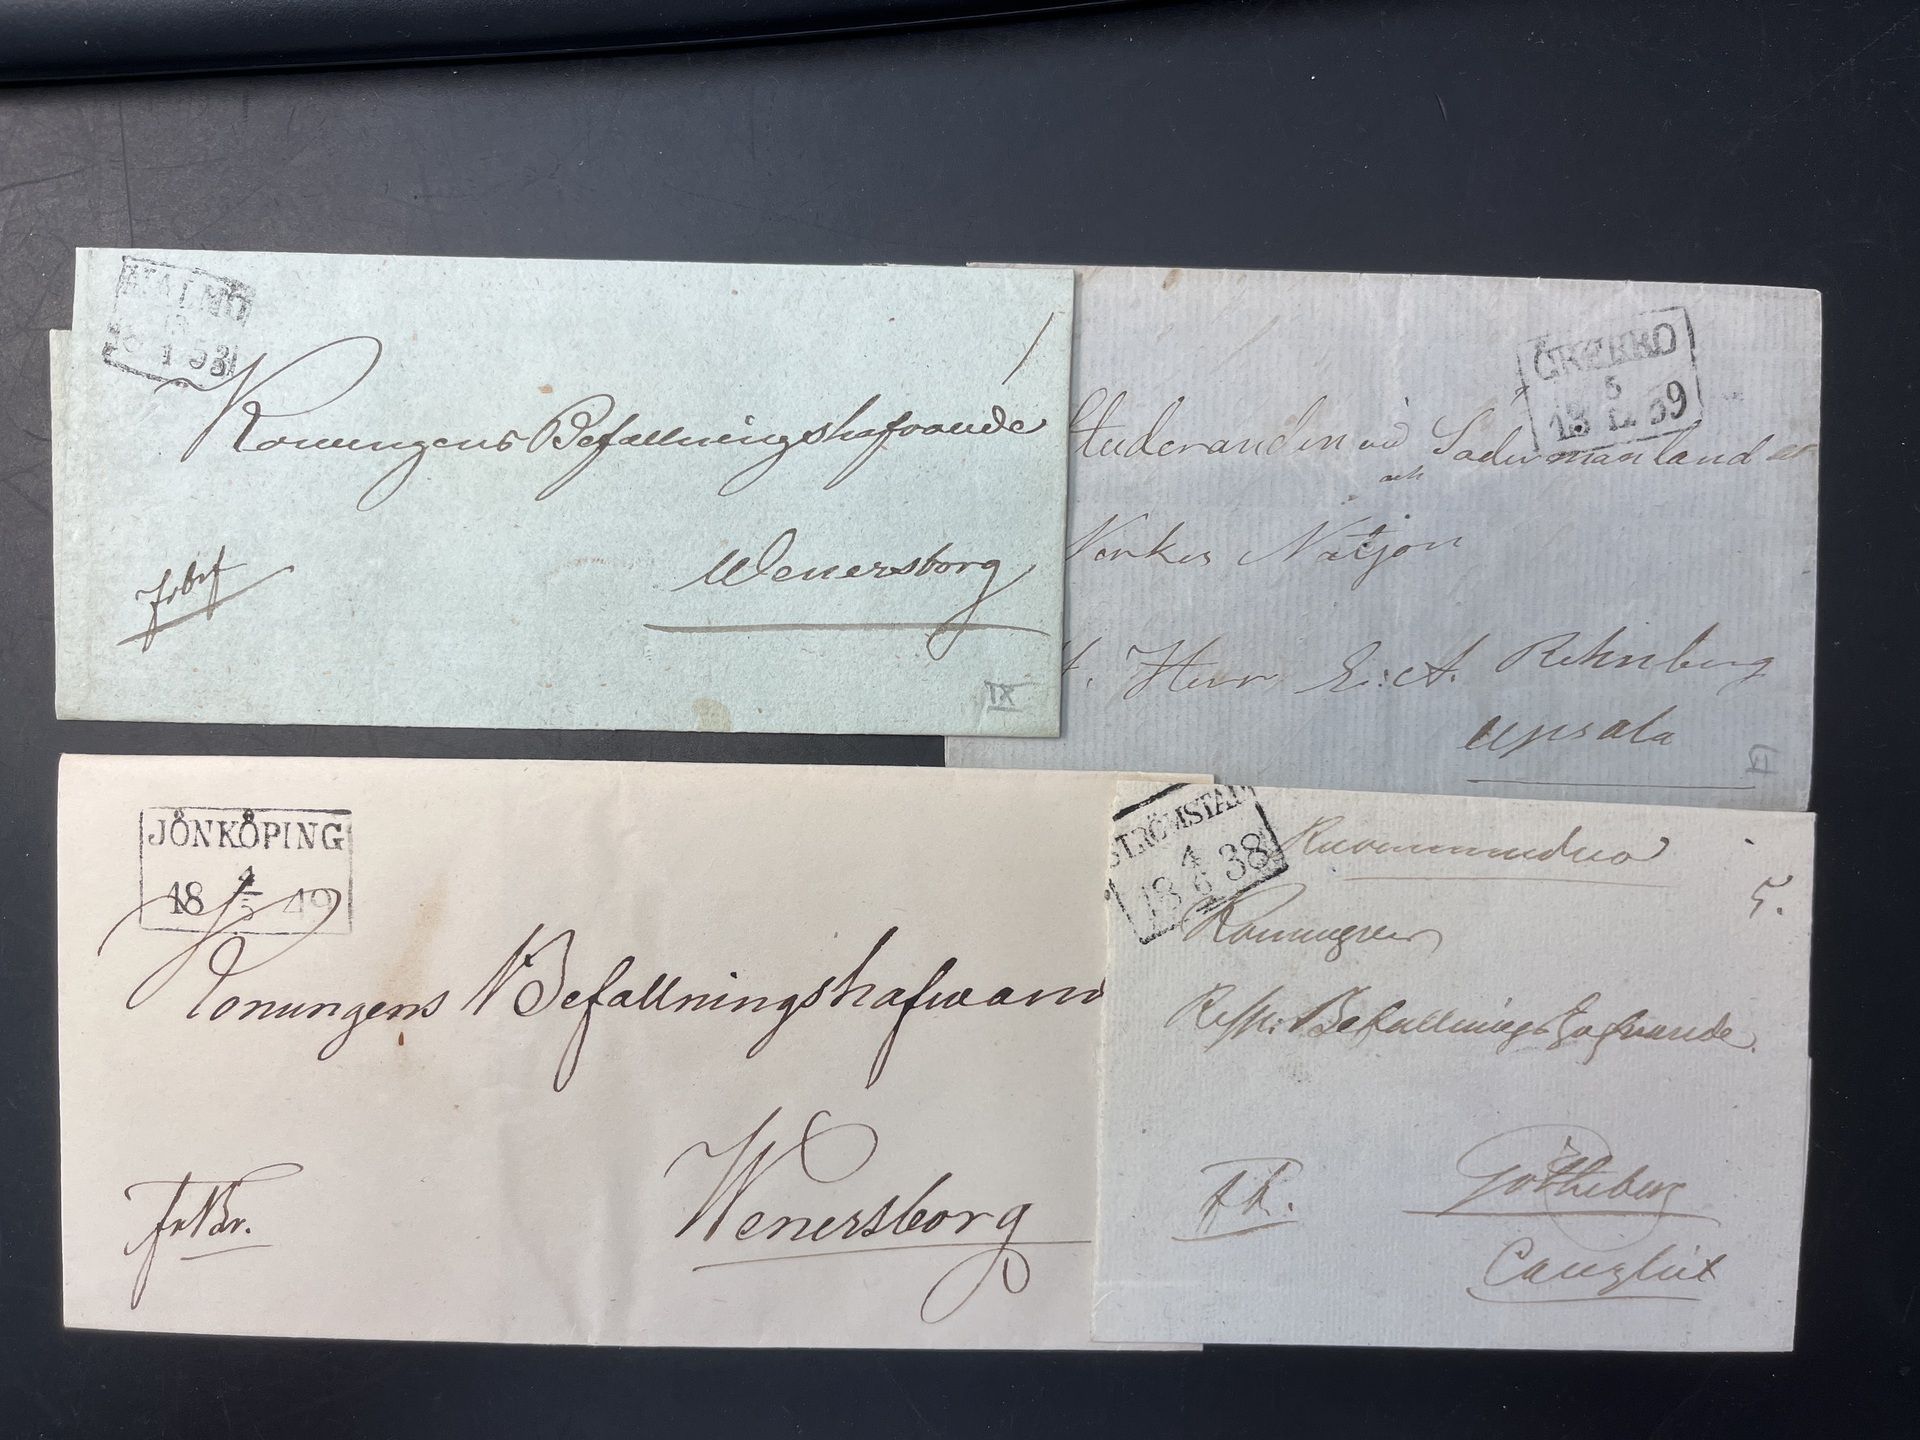 MALMÖ
18 1 53
Konungens Befallningshafvande
Wenersborg
frbrf
IX
ÖREBRO
5
18 12 39
Studeranden vid Södermanland
och
Nerkes Natjon
Herr E: A. Rehnberg
Upsala
JÖNKÖPING
4
18 5 49
Konungens Befallningshafwand
Wenersborg
frBr.
STRÖMSTAD
4
18 6 38
Recommenderas
5.
Konungens
Resp: Befallningshafvande
Götheborg
Canzliet